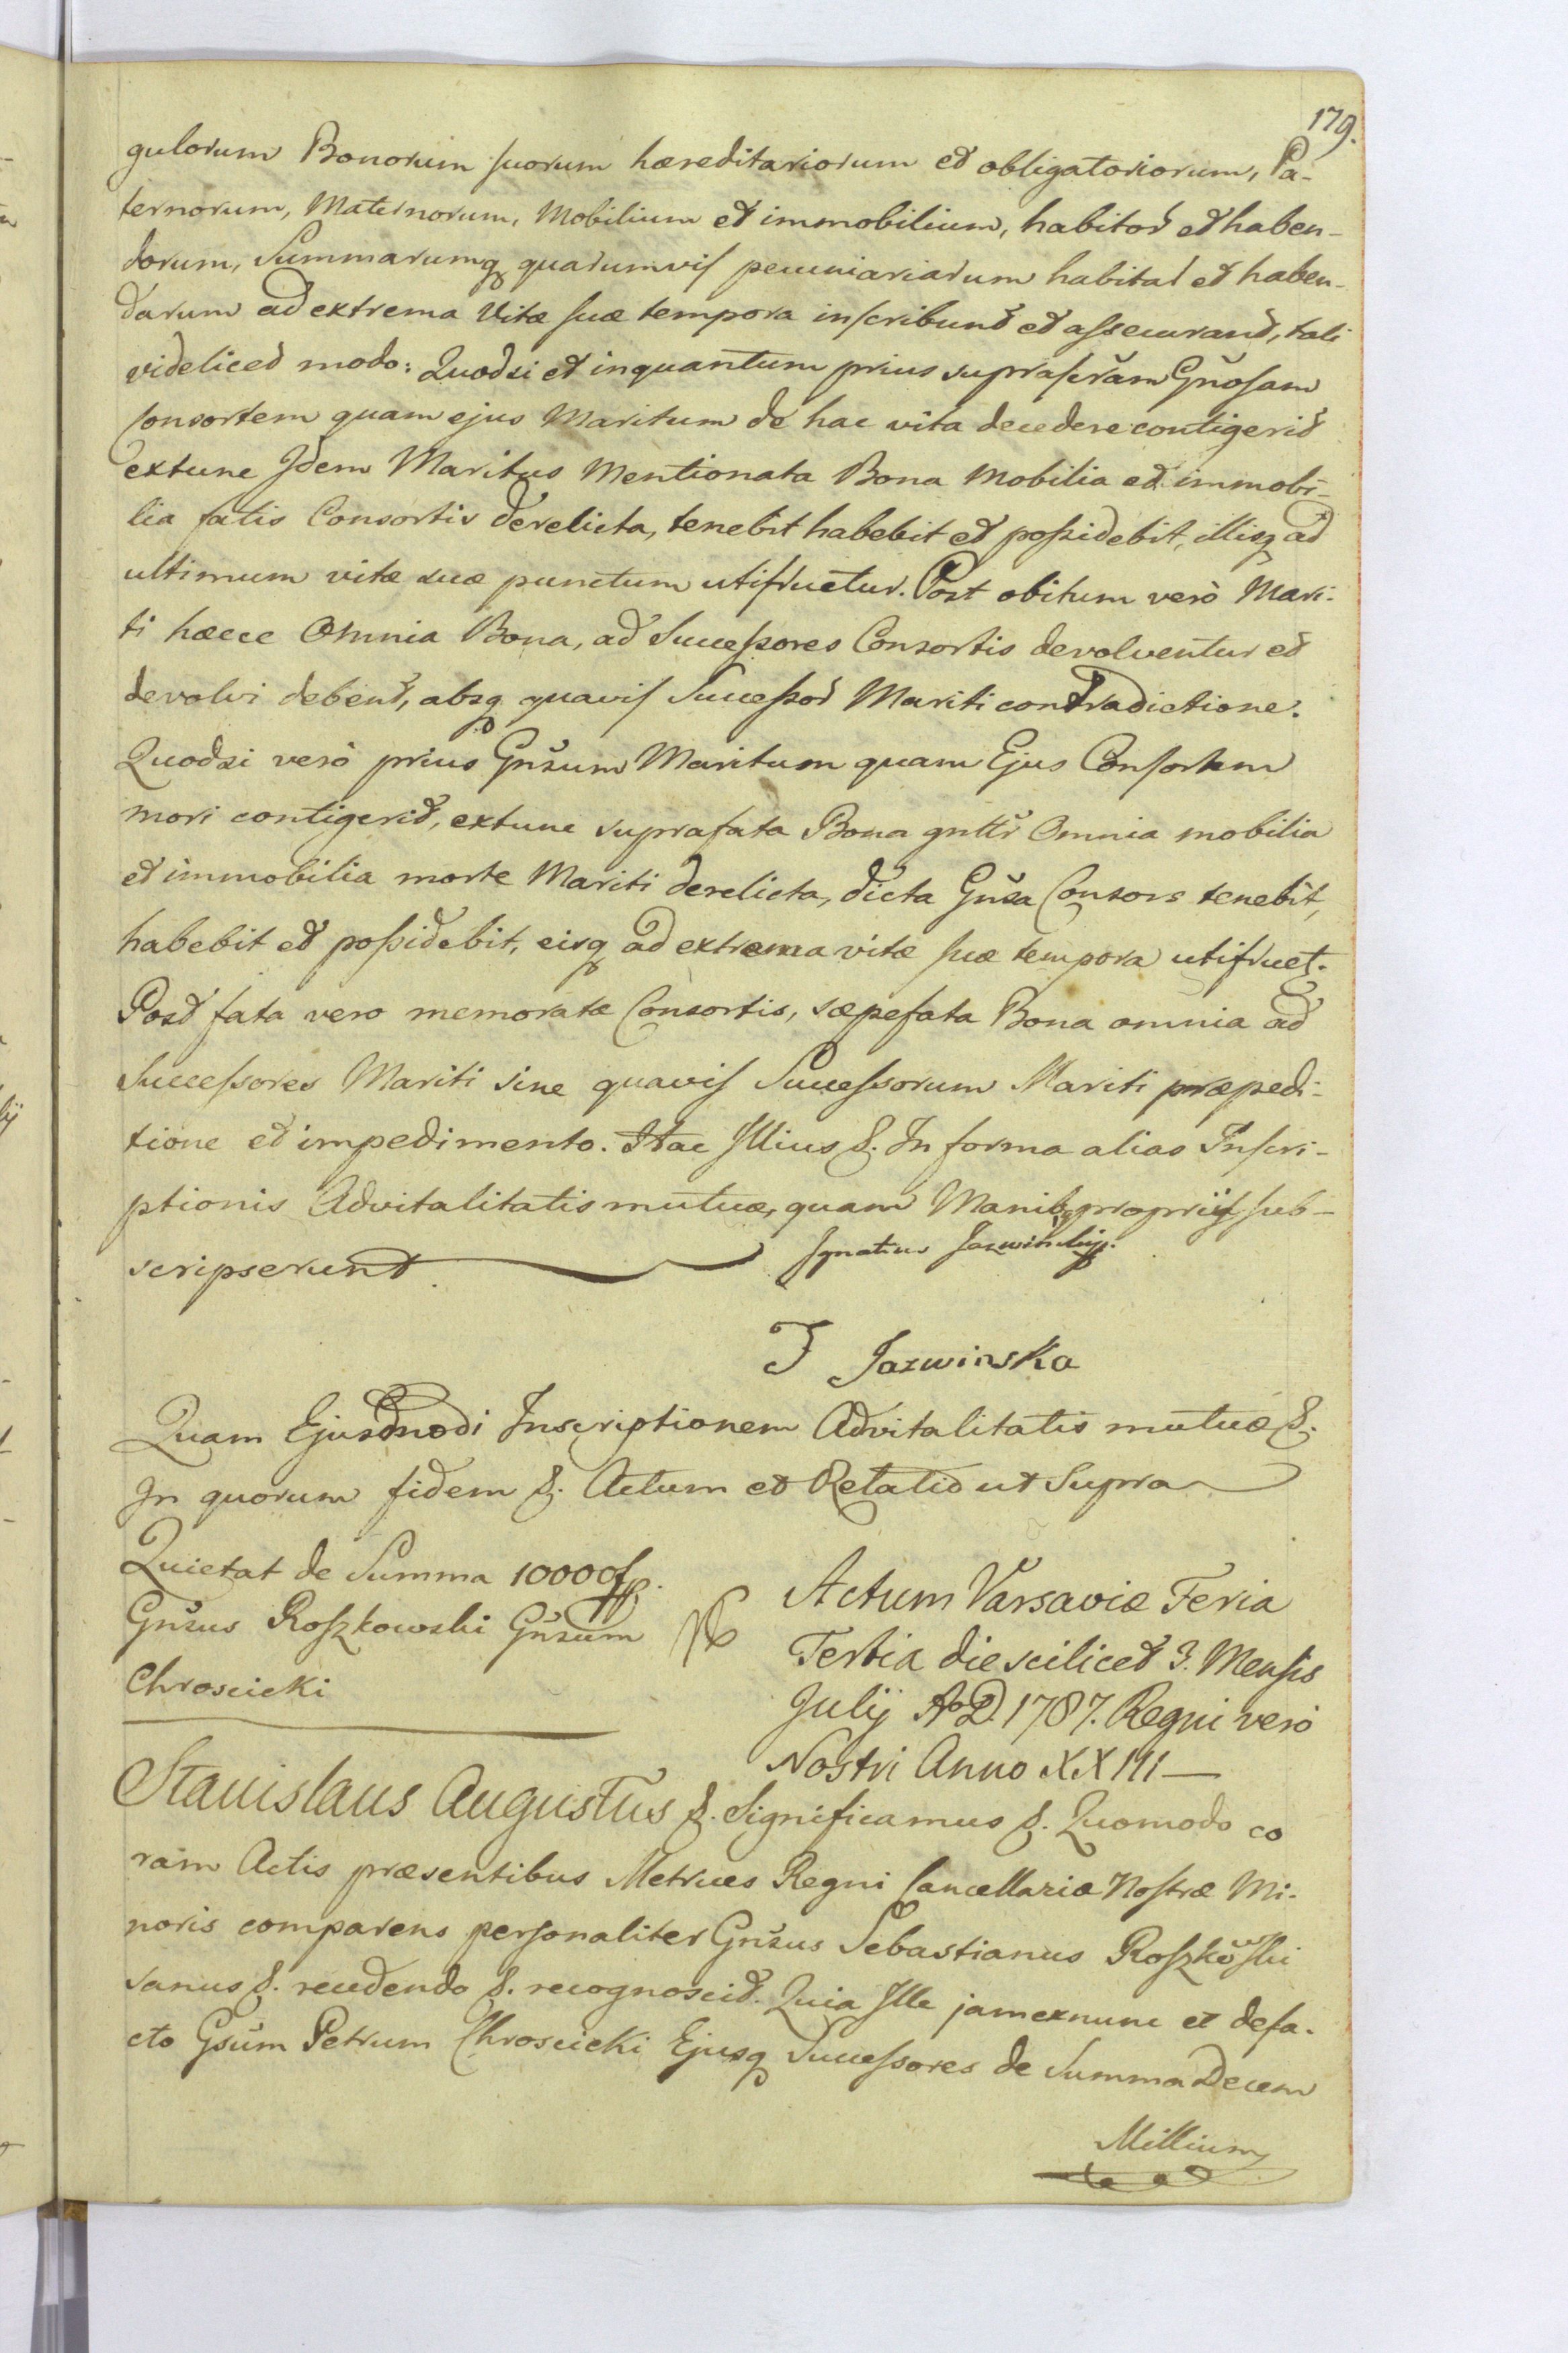 179.
gulorum Bonorum suorum hæreditariorum et obligatoriorum, Pa-
ternorum, Maternorum, Mobilium et immobilium, habitor et haben-
dorum, Summarumq quarumvis pecuniariarum habitar et haben-
darum ad extrema Vitæ suæ tempora inscribunt et assecurant, tali
videlicet modo: Quodsi et inquantum prius suprascr̃am Gñosam
Consortem quam ejus Maritum de hac vita decedere contigerit
extunc Idem Maritus Mentionata Bona Mobilia et immobi-
lia fatis Consortis derelicta, tenebit habebit et possidebit, illisq ad
ultimum vitæ suæ punctum utifruetur. Post obitum verò Mari-
ti hæcce Omnia Bona, ad Successores Consortis devolventur et
devolvi debent, absq quavis Successor Mariti contradictione.
Quodsi verò prius Gñsum Maritum quam Ejus Consortem
mori contigerit, extunc suprafata Bona gnttr̃ Omnia mobilia
et immobilia morte Mariti derelicta, dicta Gñsa Consors tenebit,
habebit et possidebit, eisq ad extrema vitæ suæ tempora utifruet.
Post fata vero memoratæ Consortis, sæpefata Bona omnia ad
Successores Mariti sine quavis Successorum Mariti præpedi-
tione et impedimento. Hac Illius &. In forma alias Inscri-
ptionis Advitalitatis mutuæ, quam Manibq propriis sub-
scripserunt
Ignatius Jazwinski
J Jazwinska
Quam Ejusdmodi Inscriptionem Advitalitatis mutuæ &.
In quorum fidem &. Actum et Relatio ut Supra
Quietat de Summa 10000 fp.
Gñsus Roszkowski Gñsum
Chroscicki
Actum Varsaviæ Feria
Tertia die scilicet 3. Mensis
Julij A D. 1787. Regni verò
Nostri Anno XXIII
Stanislaus Augustus &. Significamus &. Quomodo co
ram Actis præsentibus Metrices Regni Cancellariæ Nostræ Mi-
noris comparens personaliter Gñsus Sebastianus Roszkowski
sanus &. recedendo &. recognoscit. Quia Ille jamexnunc et defa-
cto Gsũm Petrum Chroscicki Ejusq Successores de Summa Decem
Millium